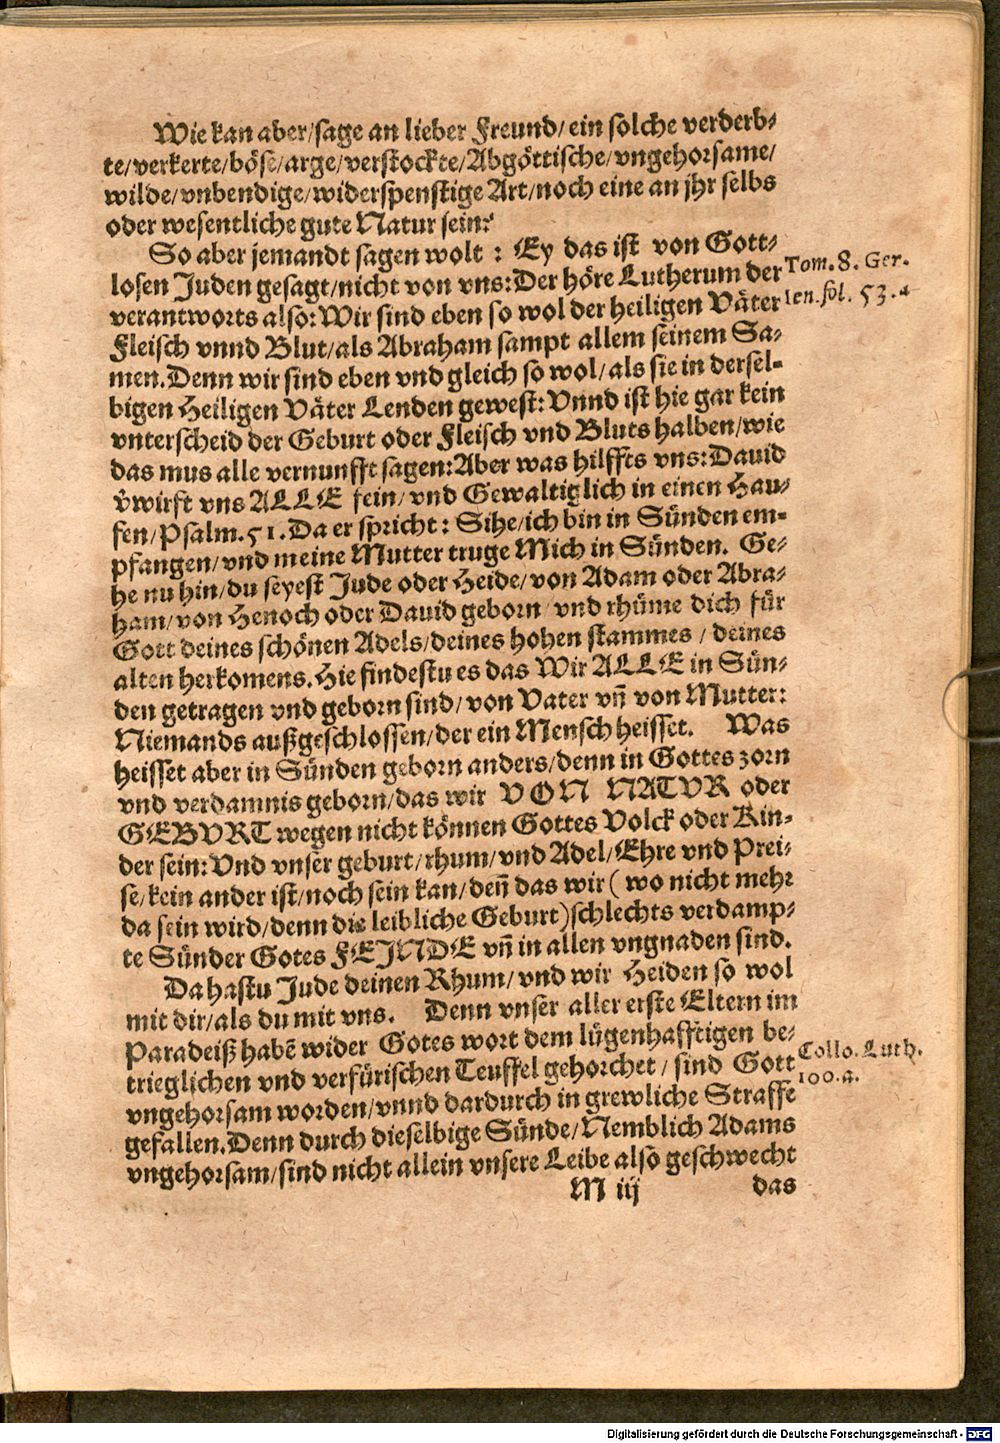 Wie kan aber/sage an lieber Freund/ein solche verderb-
te/verkerte/böse/arge/verstockte/Abgöttische/vngehorsame/
wilde/vnbendige/widerspenstige Art/noch eine an jhr selbs
oder wesentliche gute Natur sein?
So aber jemandt sagen wolt : Ey das ist von Gott-
losen Juden gesagt/nicht von vns:Der höre Lutherum der
Tom. 8. Ger.
verantworts also:Wir sind eben so wol der heiligen Väter
Ien. fol. 53. a
Fleisch vnnd Blut/als Abraham sampt allem seinem Sa-
men.Denn wir sind eben vnd gleich so wol/als sie in dersel-
bigen Heiligen Väter Lenden gewest:Vnnd ist hie gar kein
vnterscheid der Geburt oder Fleisch vnd Bluts halben/wie
das mus alle vernunfft sagen:Aber was hilffts vns:Dauid
v̈wirft vns ALLE fein/vnd Gewaltiglich in einen Hau-
fen/Psalm.51.Da er spricht : Sihe/ich bin in Sünden em-
pfangen/vnd meine Mutter truge Mich in Sünden. Ge-
he nu hin/du seyest Jude oder Heide/von Adam oder Abra-
ham/von Henoch oder Dauid geborn/vnd rhüme dich für
Gott deines schönen Adels/deines hohen stammes / deines
alten herkomens.Hie findestu es das Wir ALLE in Sün-
den getragen vnd geborn sind/von Vater vñ von Mutter:
Niemands außgeschlossen/der ein Mensch heisset. Was
heisset aber in Sünden geborn anders/denn in Gottes zorn
vnd verdamnis geborn/das wir VON NATVR oder
GEBVRT wegen nicht können Gottes Volck oder Kin-
der sein:Vnd vnser geburt/rhum/vnd Adel/Ehre vnd Prei-
se/kein ander ist/noch sein kan/deñ das wir ( wo nicht mehr
da sein wird/denn die leibliche Geburt)schlechts verdamp-
te Sünder Gotes FEJNDE vñ in allen vngnaden sind.
Da hastu Jude deinen Rhum/vnd wir Heiden so wol
mit dir/als du mit vns. Denn vnser aller erste Eltern im
Paradeiß habē wider Gotes wort dem lügenhafftigen be-
Collo. Luth.
trieglichen vnd verfürischen Teuffel gehorchet / sind Gott
100.a.
vngehorsam worden/vnnd dardurch in grewliche Straffe
gefallen.Denn durch dieselbige Sünde/Nemblich Adams
vngehorsam/sind nicht allein vnsere Leibe also geschwecht
M iij das
Digitalisierung gefördert durch die Deutsche Forschungsgemeinschaft - DFG